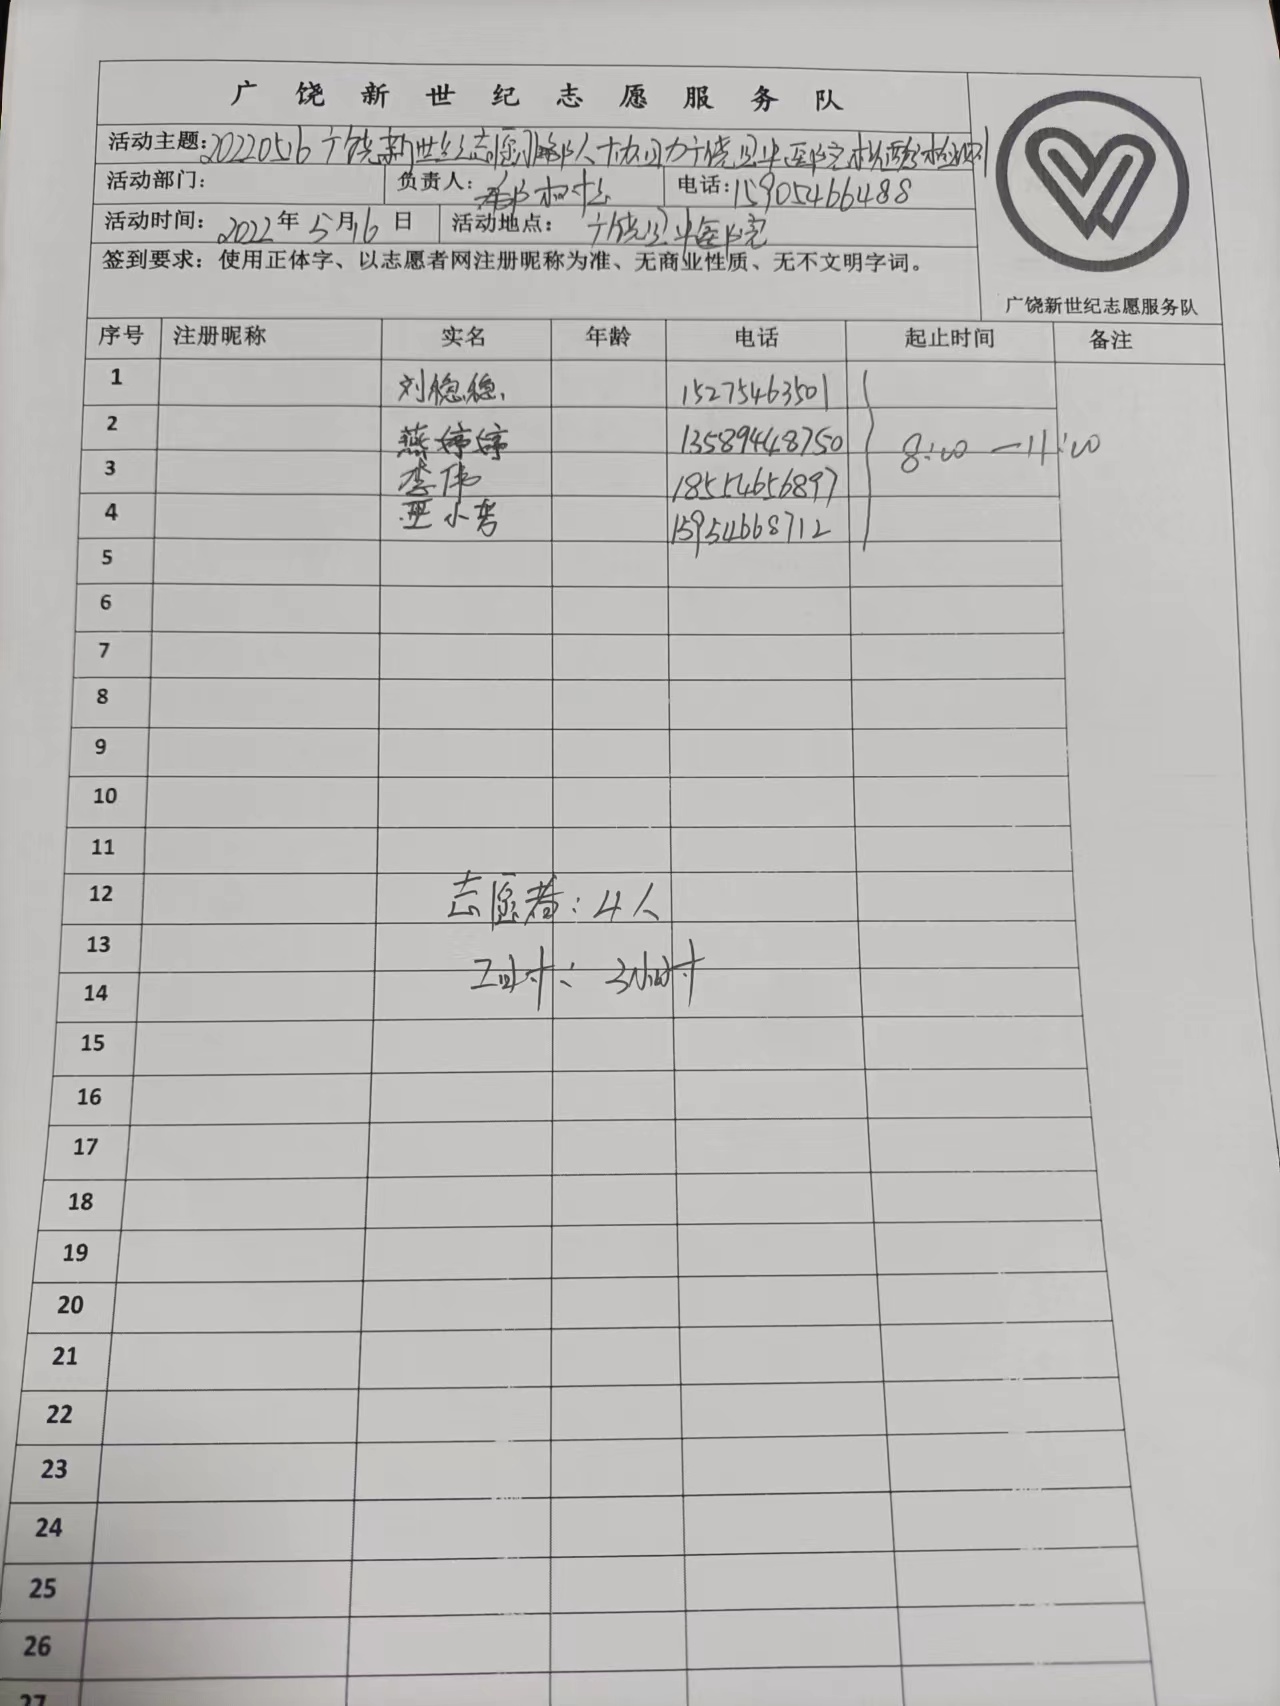 广饶新世纪志愿服务队
活动主题:20220516广饶新世纪志愿服务队
活动部门: 负责人: 电话:15905466488
活动时间: 2022年5月16日 活动地点: 广饶县中医院
签到要求：使用正体字、以志愿者网注册昵称为准、无商业性质、无不文明字词。
广饶新世纪志愿服务队
序号 注册昵称 实名 年龄 电话 起止时间 备注
1 刘稳稳 15275463501
2 燕婷婷 13589448750 8:00—11:00
3 李伟 18554656897
4 小 15954668712
5
6
7
8
9
10
11
12 志愿者:4人
13
14 工时:3小时
15
16
17
18
19
20
21
22
23
24
25
26
27